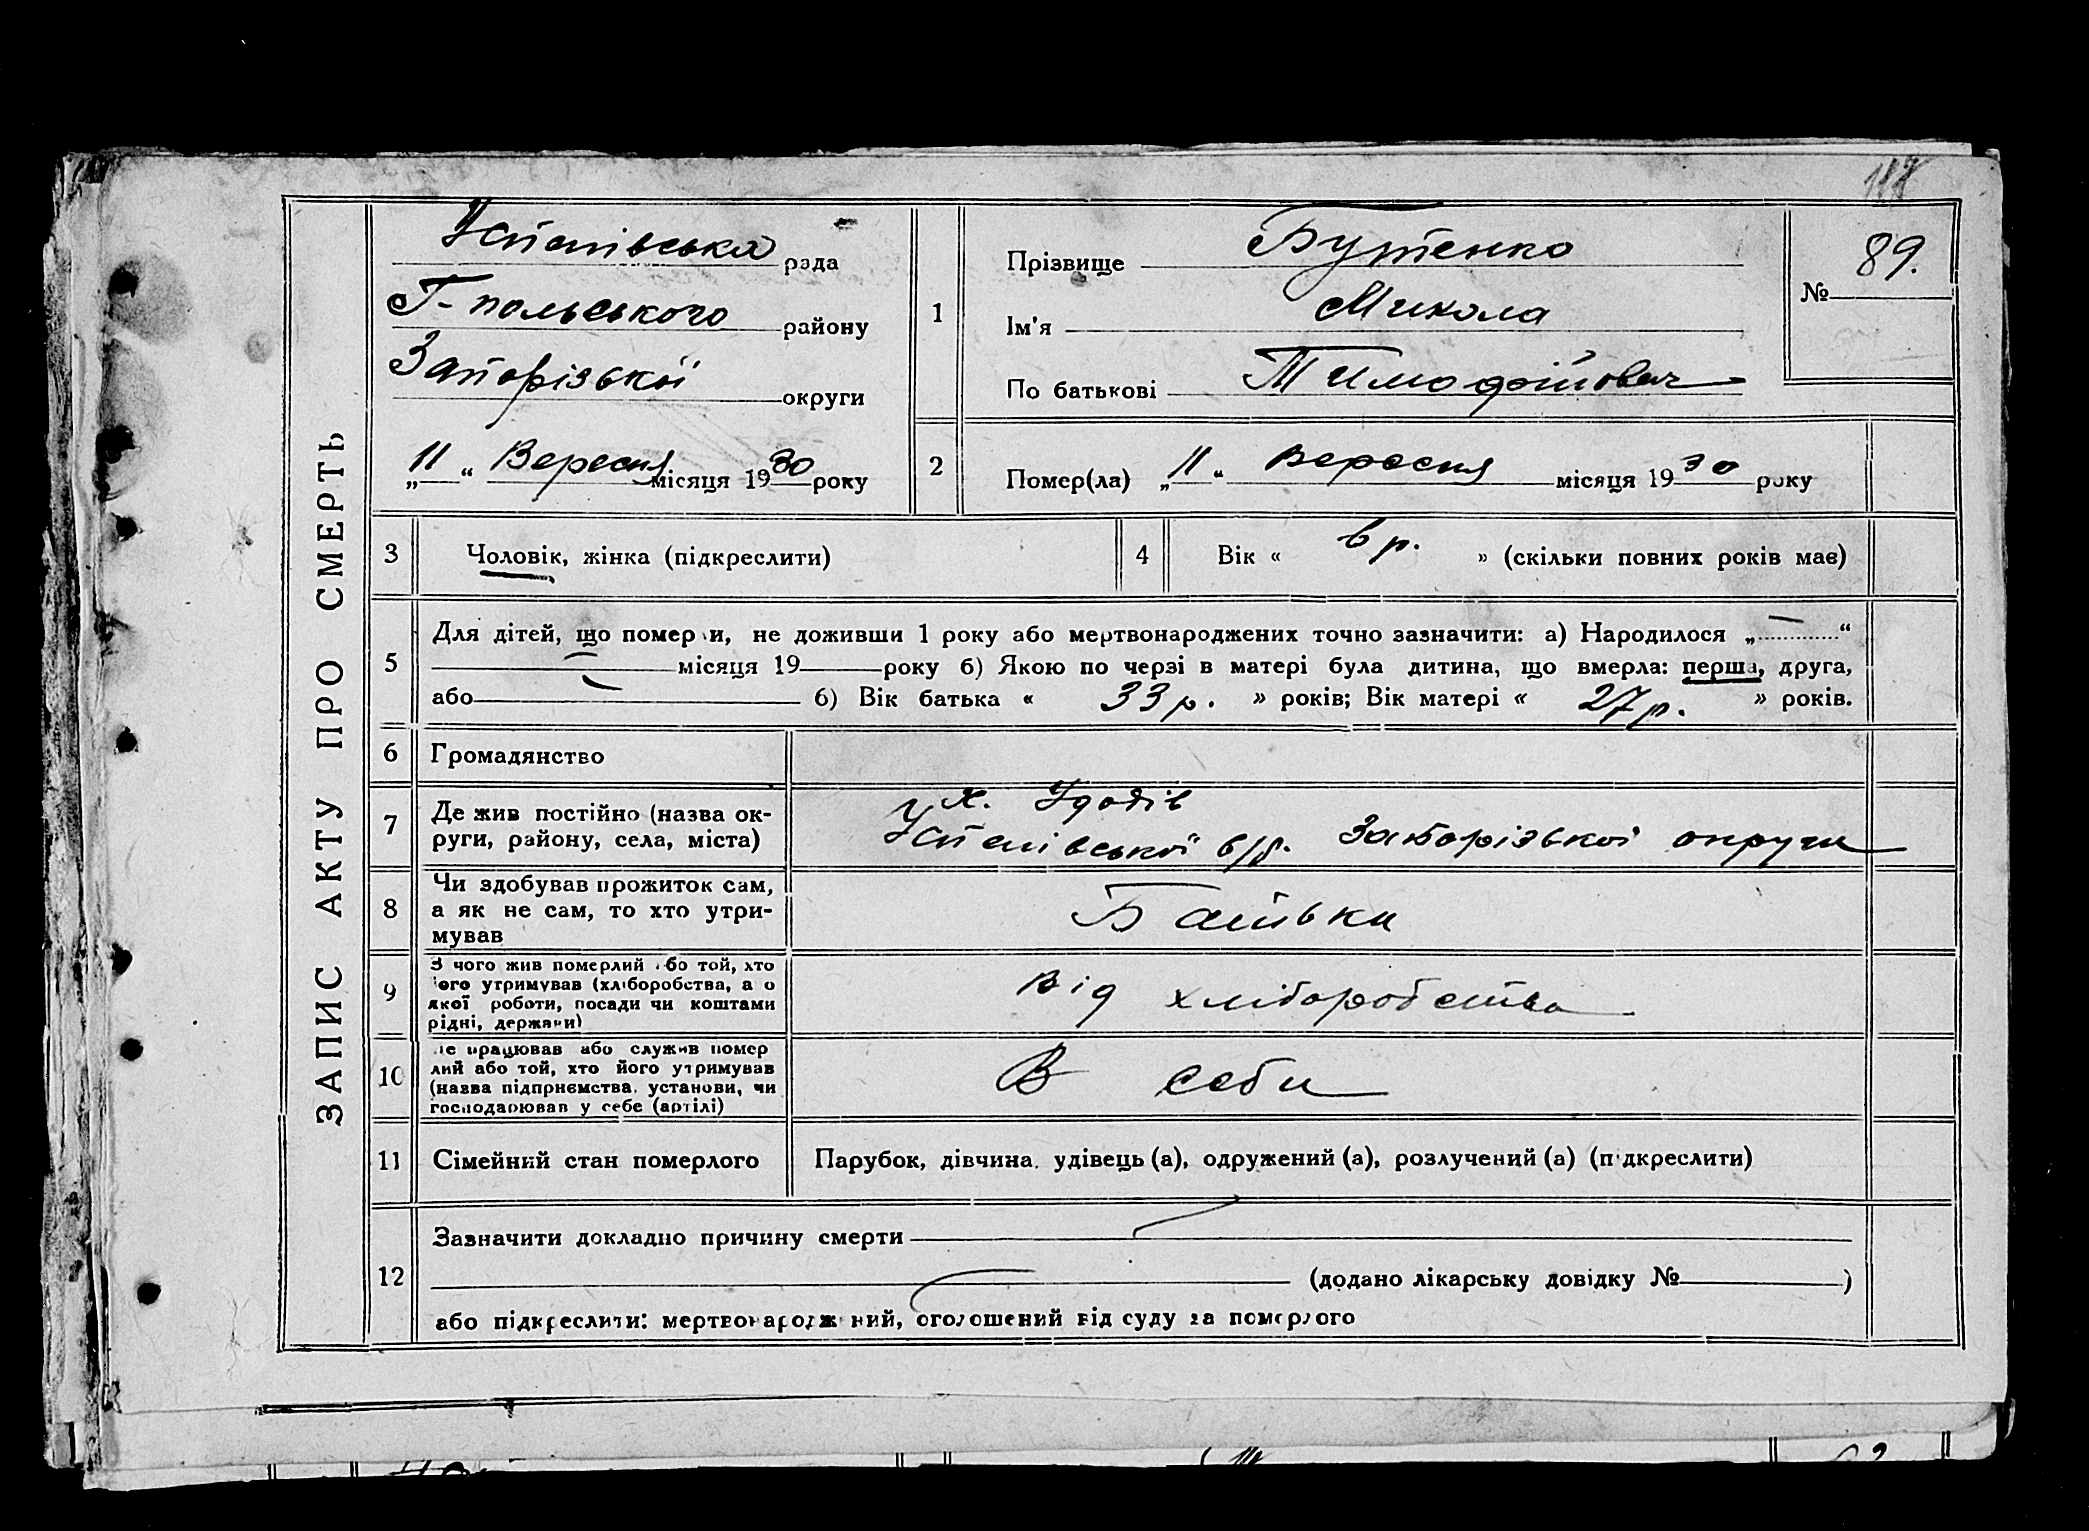 ЗАПИС АКТУ ПРО СМЕРТЬ
Успенівська рада
Г-польського району
Запорізької округи
„11“ Вересня місяця 1930 року
1
Прізвище Бутенко
Ім'я Микола
По батькові Тимофійович
№ 89.
2
Помер(ла) „11“ Вересня місяця 1930 року
3 Чоловік, жінка (підкреслити)
4 Вік « 6 р. » (скільки повних років має)
5
Для дітей, що померли, не доживши 1 року або мертвонароджених точно зазначити: а) Народилося „—“
— місяця 19 року б) Якою по черзі в матері була дитина, що вмерла: перша, друга,
або — б) Вік батька « 33 р. » років; Вік матері « 27 р. » років.
6 Громадянство
7 Де жив постійно (назва ок-
руги, району, села, міста)
х. Удодів
Успенівської с/р. Запорізької округи
8 Чи здобував прожиток сам,
а як не сам, то хто утри-
мував
Батьки
9 З чого жив померлий або той, хто
його утримував (хліборобства, а о
якої роботи, посади чи коштами
рідні, держави)
Від хліборобства
10 Де працював або служив помер
лий або той, хто його утримував
(назва підприємства, установи, чи
господарював у себе (артілі)
В себи
11 Сімейний стан померлого
Парубок, дівчина, удівець (а), одружений (а), розлучений (а) (підкреслити)
12
Зазначити докладно причину смерти
(додано лікарську довідку № )
або підкреслити: мертвонароджений, оголошений від суду за померлого